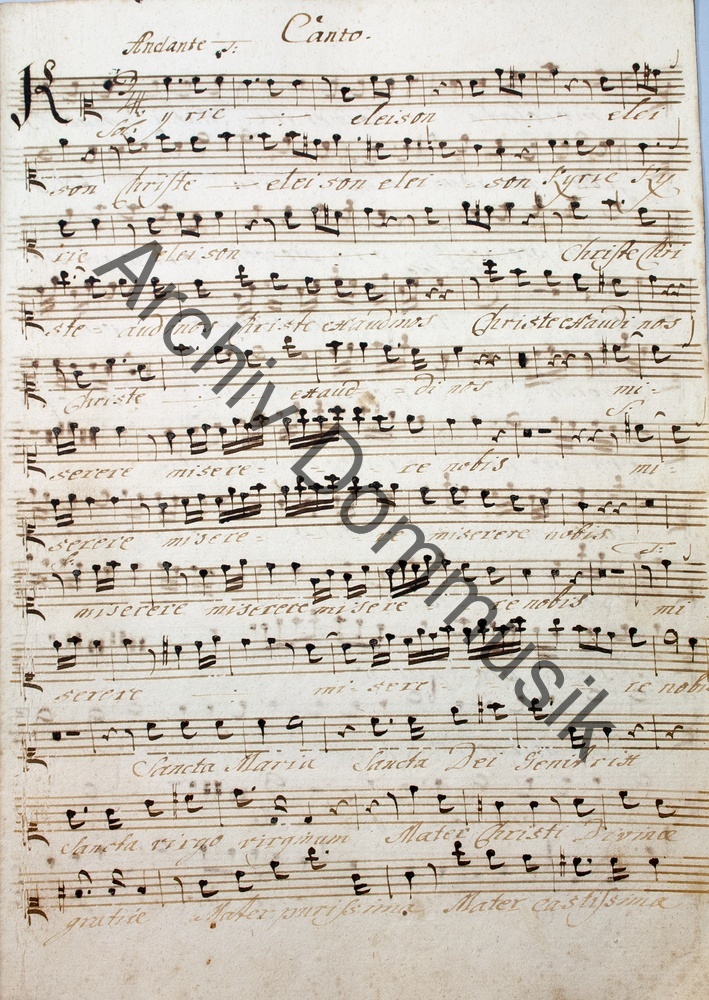 Canto.
Andante T:
Kyrie eleison elei
Sol:
son Christe eleison elei son Kyrie Ky
rie eleison Christe Chri
ste audi nos Christe exaudi nos Christe exaudi nos
Christe exaudi nos mi-
S:
serere misere- re nobis mi-
serere misere- re miserere nobis
T:
miserere miserere misere re nobis mi
serere mi- sere- re nobis
Sancta Maria Sancta Dei Genitrix
Sancta virgo virginum Mater Christi Divinæ
gratiæ Mater purissima Mater castissima
Archiv Dommusik